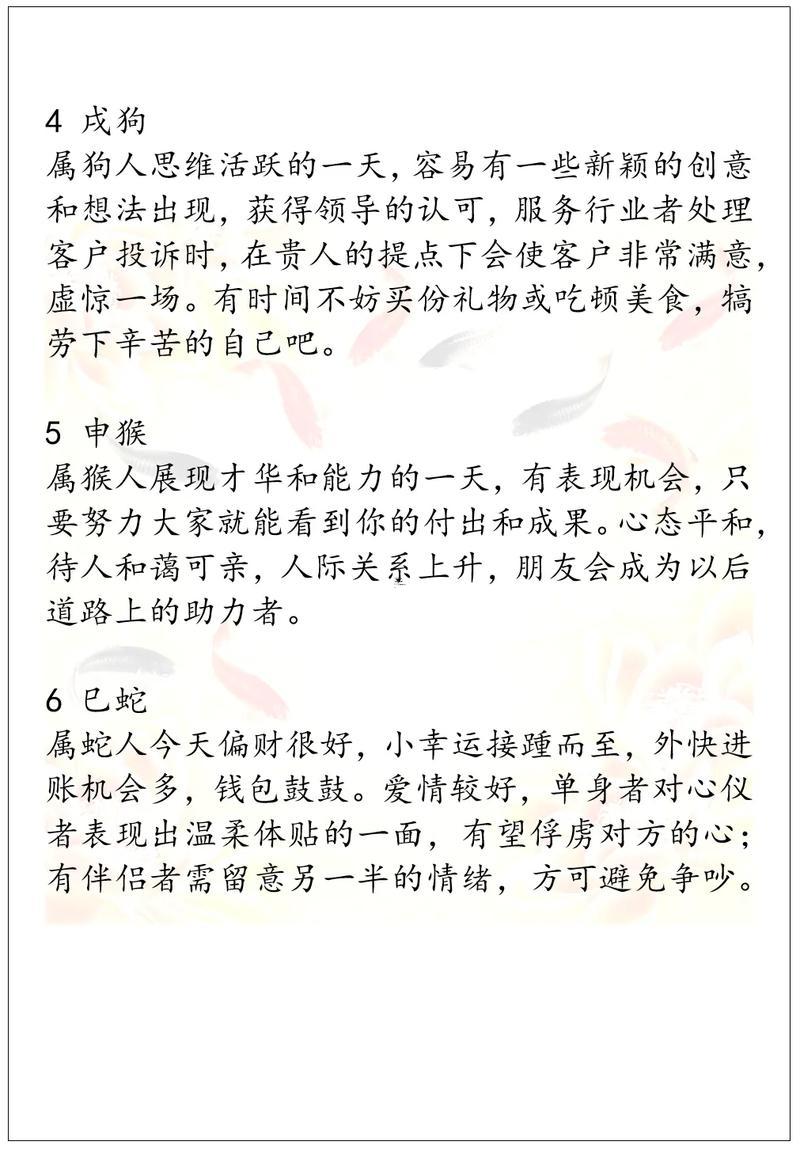 4 戌狗
属狗人思维活跃的一天，容易有一些新颖的创意
和想法出现，获得领导的认可，服务行业者处理
客户投诉时，在贵人的提点下会使客户非常满意，
虚惊一场。有时间不妨买份礼物或吃顿美食，犒
劳下辛苦的自己吧。
5 申猴
属猴人展现才华和能力的一天，有表现机会，只
要努力大家就能看到你的付出和成果。心态平和，
待人和蔼可亲，人际关系上升，朋友会成为以后
道路上的助力者。
6 巳蛇
属蛇人今天偏财很好，小幸运接踵而至，外快进
账机会多，钱包鼓鼓。爱情较好，单身者对心仪
者表现出温柔体贴的一面，有望俘虏对方的心；
有伴侣者需留意另一半的情绪，方可避免争吵。